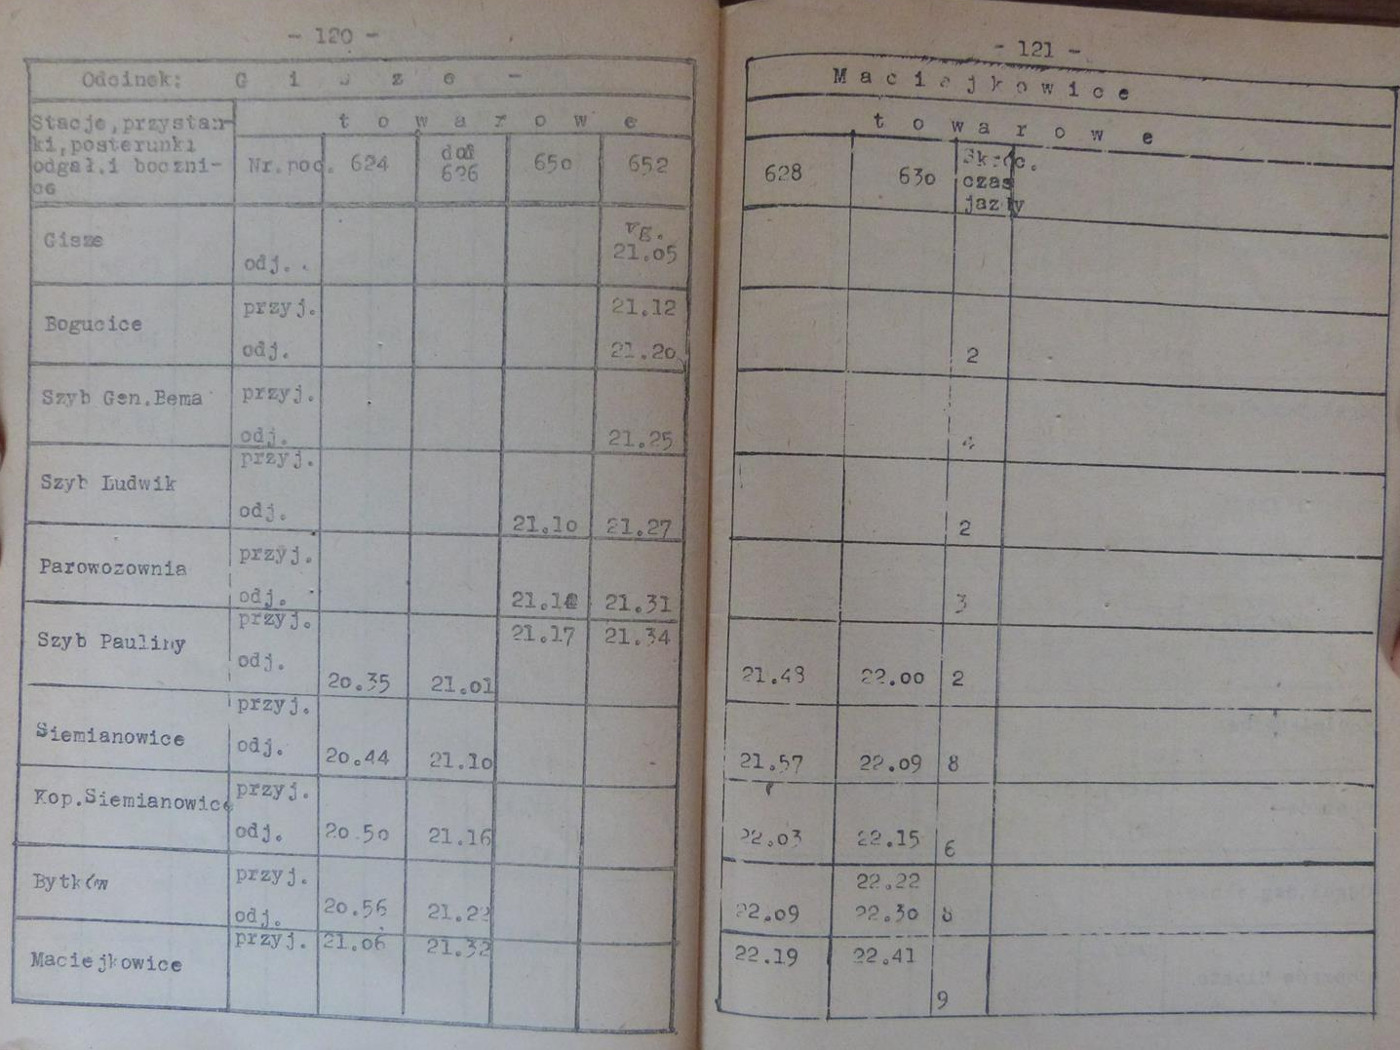 - 120 -
Odcinek: G i s z e -
Stacje,przystan-
ki,posterunki
odgał.i boczni-
ce
t o w a r o w e
Nr.poc. 624 dod 626 650 652
Gisze
vg.
21.05
odj.
Bogucice
przyj. 21.12
odj. 21.20
Szyb Gen.Bema
przyj.
odj. 21.25
Szyb Ludwik
przyj.
odj. 21.10 21.27
Parowozownia
przyj.
odj. 21.31
Szyb Pauliny
przyj. 21.17 21.34
odj. 20.35 21.01
Siemianowice
przyj.
odj. 20.44 21.10
Kop.Siemianowice
przyj.
odj. 20.50 21.16
Bytków
przyj.
odj. 20.56 21.22
Maciejkowice
przyj. 21.06 21.32
- 121 -
M a c i e j k o w i c e
t o w a r o w e
628 630
Skróc.
czas
jazdy
2
4
2
3
21.48 22.00 2
21.57 22.09 8
22.03 22.15 6
22.22
22.09 22.30
22.19 22.41
9